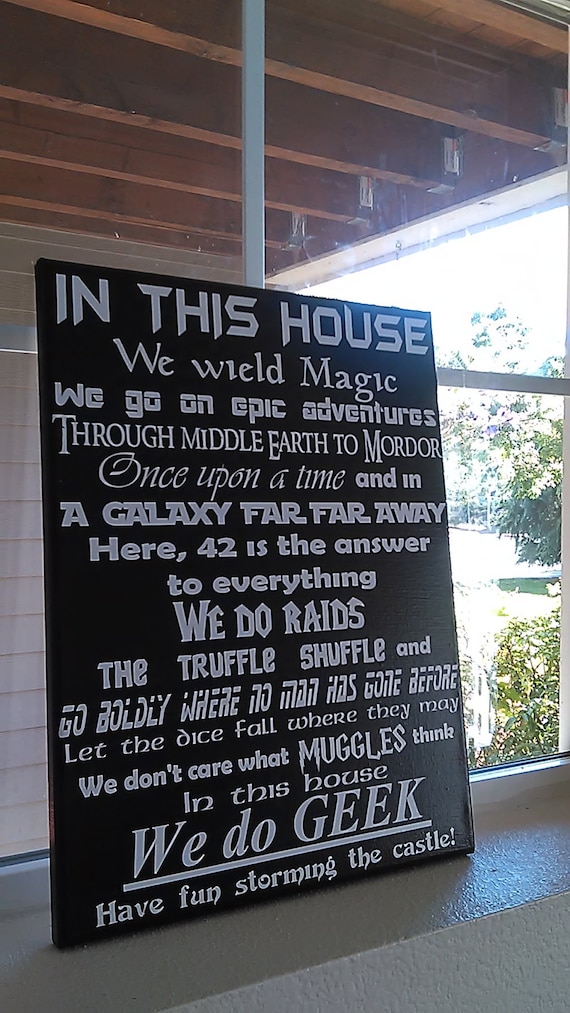 IN THIS HOUSE
We wield Magic
We go on epic adventures
THROUGH MIDDLE EARTH TO MORDOR
Once upon a time and in
A GALAXY FAR FAR AWAY
Here, 42 is the answer
to everything
WE DO RAIDS
THE TRUFFLE SHUFFLE and
GO BOLDLY WHERE NO MAN HAS GONE BEFORE
Let the dice fall where they may
We don't care what MUGGLES think
In this house
We do GEEK
Have fun storming the castle!